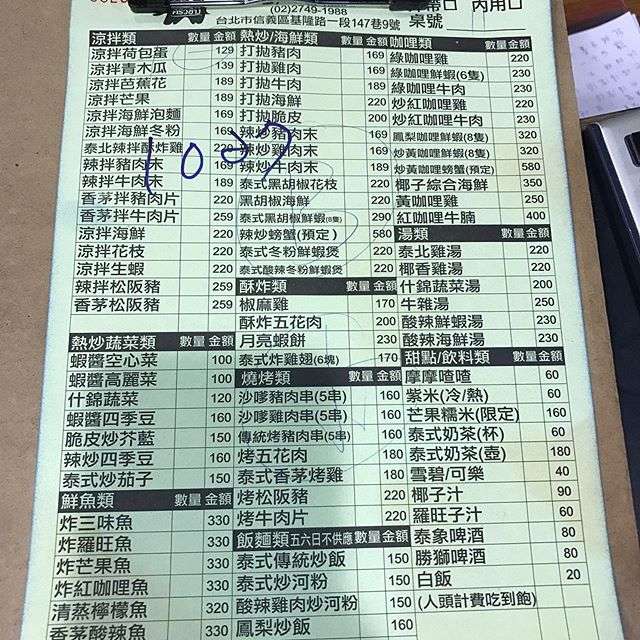 (02)2749-1988
內用口
台北市信義區基隆路一段147巷9號
桌號
涼拌類 數量 金額
涼拌荷包蛋 129
涼拌青木瓜 139
涼拌芭蕉花 189
涼拌芒果 189
涼拌海鮮泡麵 169
涼拌海鮮冬粉 169
泰北辣拌酥炸雞 220
辣拌豬肉末 169
辣拌牛肉末 189
香茅拌豬肉片 220
香茅拌牛肉片 259
涼拌海鮮 220
涼拌花枝 220
涼拌生蝦 220
辣拌松阪豬 259
香茅松阪豬 259
熱炒蔬菜類 數量 金額
蝦醬空心菜 100
蝦醬高麗菜 100
什錦蔬菜 120
蝦醬四季豆 160
脆皮炒芥藍 150
辣炒四季豆 160
泰式炒茄子 150
鮮魚類 數量 金額
炸三味魚 330
炸羅旺魚 330
炸芒果魚 330
炸紅咖哩魚 330
清蒸檸檬魚 320
香茅酸辣魚 330
熱炒/海鮮類 數量 金額
打拋豬肉 169
打拋雞肉 169
打拋牛肉 189
打拋海鮮 220
打拋脆皮 200
辣炒豬肉末 169
辣炒雞肉末 169
辣炒牛肉末 189
泰式黑胡椒花枝 220
黑胡椒海鮮 220
泰式黑胡椒鮮蝦(8隻) 290
辣炒螃蟹(預定) 580
泰式冬粉鮮蝦煲 220
泰式酸辣冬粉鮮蝦煲 220
酥炸類 數量 金額
椒麻雞 170
酥炸五花肉 200
月亮蝦餅 230
泰式炸雞翅(6塊) 170
燒烤類 數量 金額
沙嗲豬肉串(5串) 160
沙嗲雞肉串(5串) 160
傳統烤豬肉串(5串) 160
烤五花肉 180
泰式香茅烤雞 180
烤松阪豬 220
烤牛肉片 220
飯麵類五六日不供應 數量 金額
泰式傳統炒飯 150
泰式炒河粉 150
酸辣雞肉炒河粉 150
鳳梨炒飯 160
咖哩類 數量 金額
綠咖哩雞 220
綠咖哩鮮蝦(6隻) 230
綠咖哩牛肉 230
炒紅咖哩雞 220
炒紅咖哩牛肉 230
鳳梨咖哩鮮蝦(8隻) 320
炒黃咖哩鮮蝦(8隻) 320
炒黃咖哩螃蟹(預定) 580
椰子綜合海鮮 350
黃咖哩雞 230
紅咖哩牛腩 400
湯類 數量 金額
泰北雞湯 220
椰香雞湯 220
什錦蔬菜湯 200
牛雜湯 250
酸辣鮮蝦湯 230
酸辣海鮮湯 230
甜點/飲料類 數量 金額
摩摩喳喳 60
紫米(冷/熱) 60
芒果糯米(限定) 60
泰式奶茶(杯) 60
泰式奶茶(壺) 180
雪碧/可樂 40
椰子汁 90
羅旺子汁 60
泰象啤酒 80
勝獅啤酒 80
白飯 20
(人頭計費吃到飽)